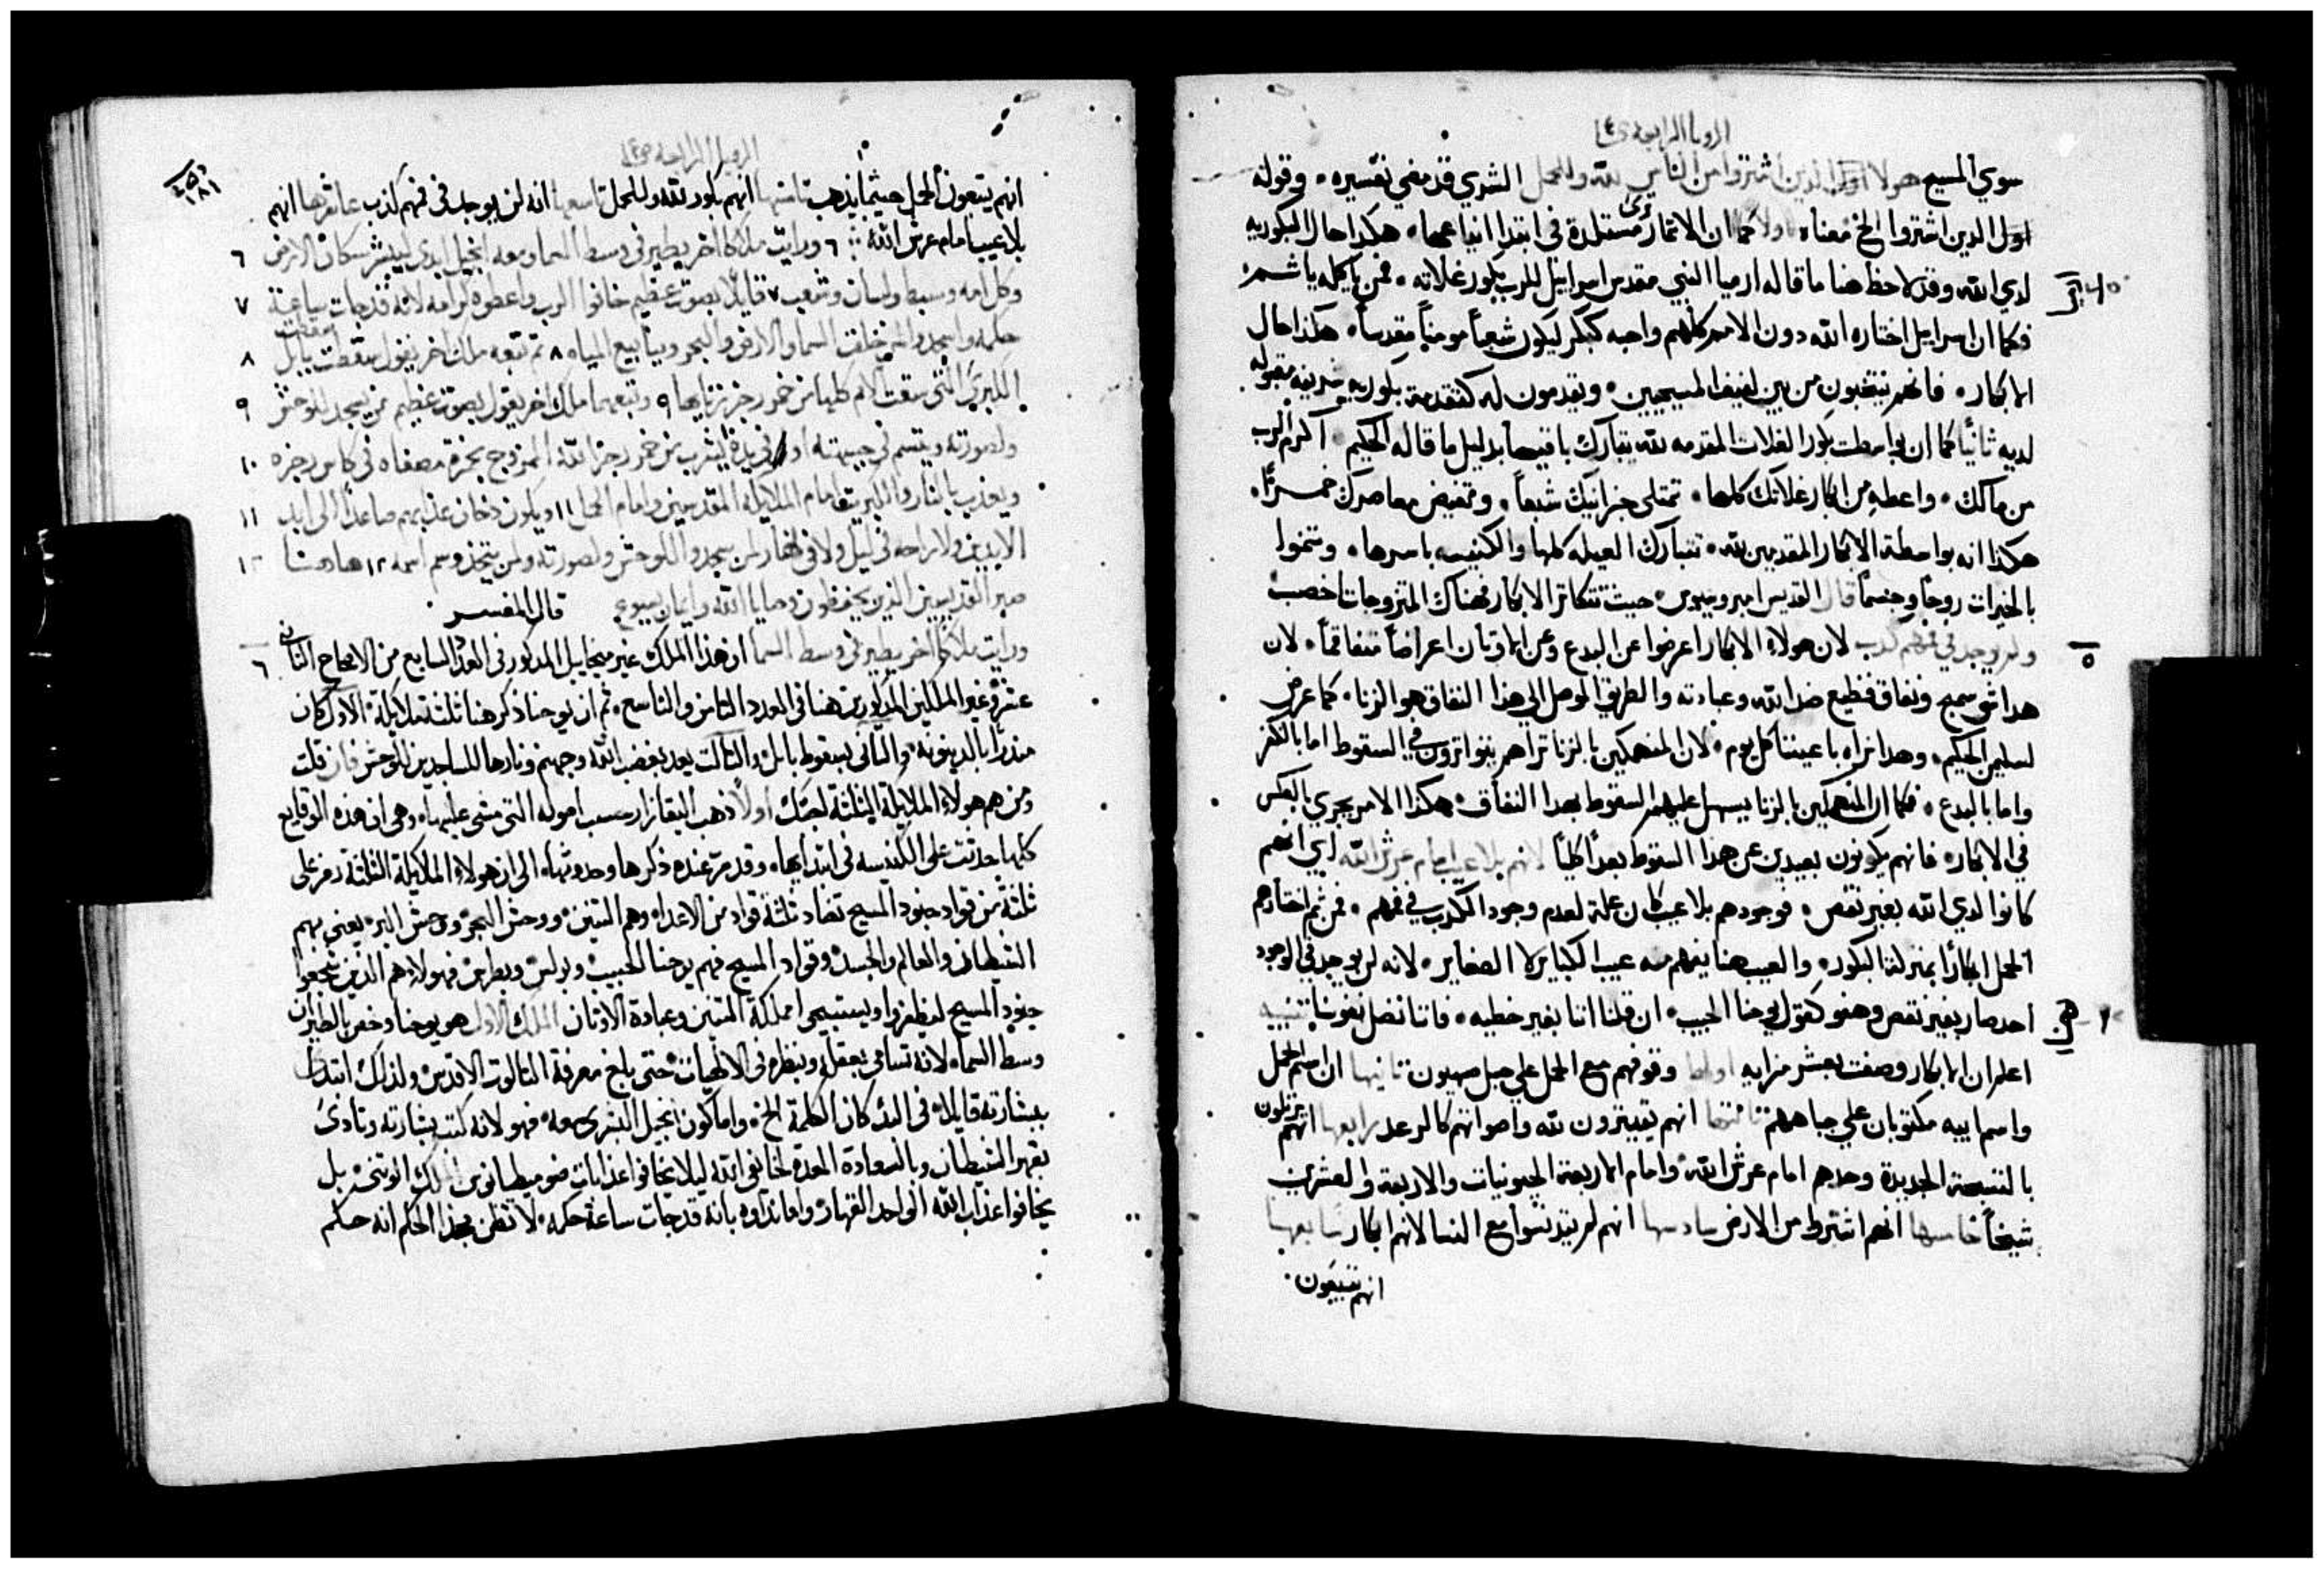 الرويا الرابعة
سوي المسيح هولا اوليك الذين اشتروا من الناس لله وللحمل الشري قد مضي تفسيره وقوله
اول الدين اشتروا الخ معناه اولا كما ان الاتمار مستلدة في ابتدا هكدا حال البكوريه
لدي الله وقد لاحظ هنا ما قاله ارميا النبي مقدس اسراييل للرب بكور غلاته فمن ياكله ياثم
فكما ان اسراييل اختاره الله دون الامم كلهم واحبه كبكر ليكون شعباً مومناً مقدساً هكذا حال
الابكار فانهم ينتخبون من بين لفيف المسيحيين ويقدمون له كتقدمة بكوريه مقبوله
لديه ثانياً كما ان بواسطت بكور الغلات المقدمه لله يتبارك باقيها بدليل ما قاله الحكيم اكرم الرب
من مالك واعطه من ابكار غلاتك كلها تمتلي خزاينك شبعاً وتفيض معاصرك خمراً
هكذا انه بواسطة الابكار المقدمين لله تتبارك العيله كلها والكنيسه باسرها وينموا
بالخيرات روحاً وجسماً قال القديس امبروسيوس حيث تتكاتر الابكار فهناك المتزوجات اخصب
ولم يوجد في فمهم كدب لان هولاء الابكار اعرضوا عن البدع وعن الاوتان اعراضاً متفاقماً لان
هدا شي سمج ونفاق فظيع ضد الله وعبادته والطريق الموصل الي هذا النفاق هو الزنا كما عرض
لسليمن الحكيم وهدا نراه باعيننا كل يوم لان المنهمكين بالزنا تراهم يتواترون في السقوط اما بالكفر
واما بالبدع فكما ان المنهمكين بالزنا يسهل عليهم السقوط بهدا النفاق هكذا الامر يجري بالعكس
في الابكار فانهم يكونون بعيدين عن هذا السقوط بعداً كلياً لانهم بلا عيب امام عرش الله اي انهم
كانوا لدي الله بغير نقص فوجودهم بلا عيب كان علة لعدم وجود الكدب في فمهم فمن ثم اختارهم
الحمل ابكاراً بمنزلة البكور والعيب هنا يفهم به عيب الكباير لا الصغاير لانه لن يوجد في الوجود
احد صار بغير نقص وهفو كقول يوحنا الحبيب ان قلنا اننا بغير خطيه فاننا نضل نفوسنا تنبيه
اعلم ان الابكار وصفت بعشر مزايه اولها وقوفهم مع الحمل علي جبل صهيون تانيها ان اسم الحمل
واسم ابيه مكتوبان علي جباههم تالتها انهم يقيترون لله واصواتهم كالرعد رابعها انهم يرتلون
بالتسبحة الجديدة وحدهم امام عرش الله وامام الاربعة الحيونيات والاربعة والعشرين
شيخاً خامسها انهم اشتروا من الارض سادسها انهم لم يتدنسوا مع النسا لانهم ابكار سابعها
انهم يتبعون
الرويا الرابعة
انهم يتبعون الحمل حيثما يذهب تامنها انهم بكور لله وللحمل تاسعها انه لن يوجد في فمهم كذب عاشرها انهم
بلا عيب امام عرش الله ٦ ورايت ملاكا اخر يطير في وسط السما ومعه انجيل ابدي ليبشر سكان الارض ٦
وكل امه وسبط ولسان وشعب ٧ قايلاً بصوت عظيم خافوا الرب واعطوه كرامه لانه قد جات ساعة ٧
حكمه واسجدوا لمن خلق السما والارض والبحر وينابيع المياه ٨ ثم تبعه ملاك اخر يقول سقطت سقطت بابل ٨
الكبري التي سقت الامم كلها من خمر رجز زنايها ٩ وتبعهما ملاك اخر يقول بصوت عظيم من يسجد للوحش ٩
ولصورته ويتسم في جبهته او في يده ليشرب من خمر رجز الله الممزوج بخمرة مصفاه في كاس رجزه ١٠
ويعذب بالنار والكبريت امام الملايكة المقدسين وامام الحمل ١١ ويكون دخان عذابهم صاعداً الي ابد ١١
الابدين ولا راحه في ليل ولا في نهار لمن سجدوا للوحش ولصورته ولمن يتخذ وسم اسمه ١٢ هاهنا ١٢
صبر القديسين الذين يحفظون وصايا الله وايمان يسوع قال المفسر
ورايت ملاكا اخر يطير في وسط السما ان هذا الملاك غير ميخاييل المذكور في العدد السابع من الاصحاح الثاني ٦
عشر وغير الملاكين المذكورين هنا في العدد الثامن والتاسع ثم ان يوحنا ذكر هنا ثلثة ملايكة الاول كان
منذراً بالدينونه والثاني بسقوط بابل والثالت يعد بغضب الله وجهنم ونارها للساجدين للوحش فان قلت
ومن هم هولاء الملايكة الثلثة اولاً ذهب حسب اصوله التي مشي عليها وهي ان هذه الوقايع
كلها حدثت علي الكنيسه في ابتدايها وقد مر عنده ذكرها وحدوثها الي ان هولاء الملايكة الثلثة رمز علي
ثلثة من قواد جنود المسيح تضاد ثلثة قواد من الاعداء وهم التنين ووحش البحر ووحش البر يعني بهم
الشيطان والعالم والجسد وقواد المسيح فهم يوحنا الحبيب وبولس وبطرس فهولاء هم الذين شجعوا
جنود المسيح ليظفروا ويستبيحوا مملكة التنين وعبادة الاوتان الملاك الاول هو يوحنا وخص بالطيران
وسط السماء لانه تسامي بعقله ونظره في الالهيات حتي بلغ معرفة التالوت الاقدس ولذلك ابتدا
ببشارته قايلاً في البدء كان الكلمة الخ واما كون انجيل البشري معه فهو لانه كتب بشارته ونادي
بقهر الشيطان وبالسعادة المعدة لخايفي الله ليلا يخافوا عذابات ضوميطيانوس الملك الوتني بل
يخافوا عذاب الله الواحد القهار واما نداوه بانه قد جات ساعة حكمه لا تظن بهذا الحكم انه حكم